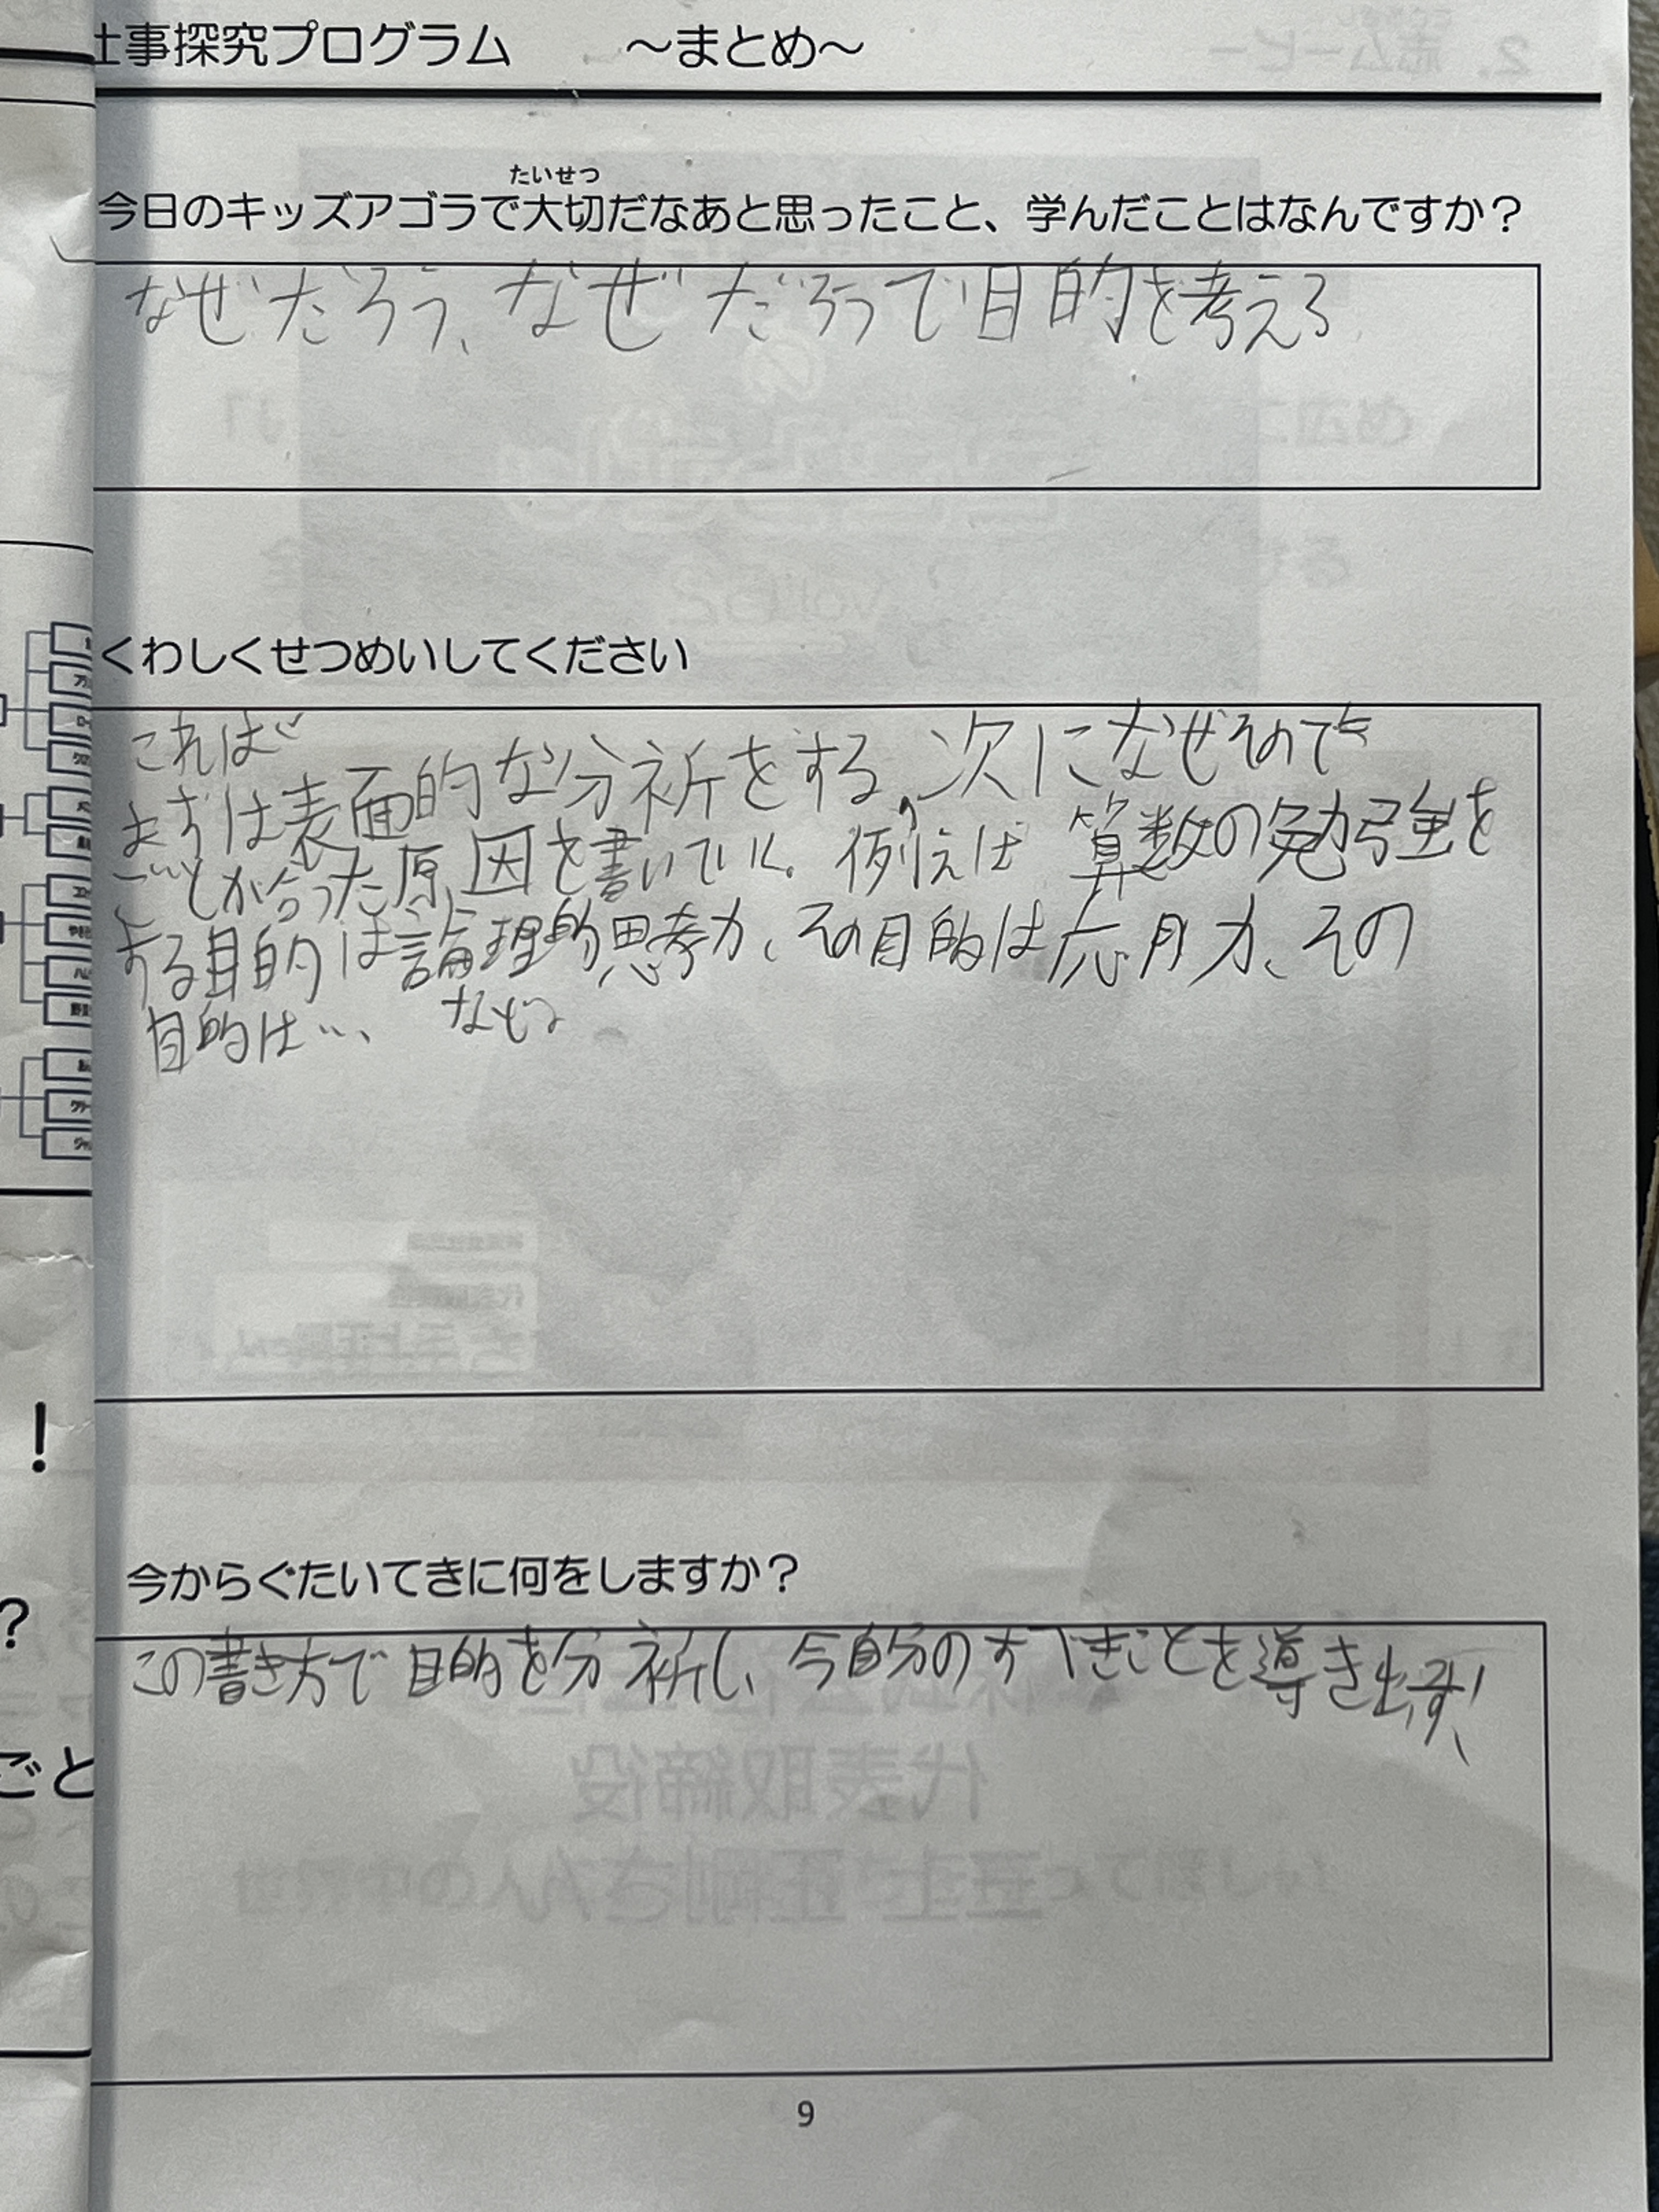 仕事探究プログラム　～まとめ～
たいせつ
今日のキッズアゴラで大切だなあと思ったこと、学んだことはなんですか？
なぜだろう、なぜだろうで目的を考える
くわしくせつめいしてください
これは
まずは表面的な分祈をする。次になぜそのでき
ごとが合った原因を書いていく。例えば算数の勉強を
する目的は論理的思考力、その目的は応用力、その
目的は…、など。
！
今からぐたいてきに何をしますか？
？
この書き方で目的を分祈し、今自分のすべきことを導き出す！
ごと
9